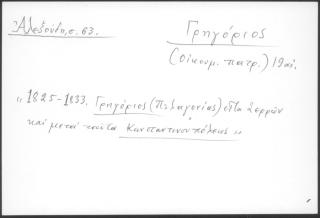 Αλεξούδη, σ. 63.
Γρηγόριος
(οίκουμ. πατρ.) 19 αἰ.
„ 1825-1833. Γρηγόριος (Πελαγονίας) εἶτα Σερρῶν
καί μετά ταῦτα Κωνσταντινουπόλεως "